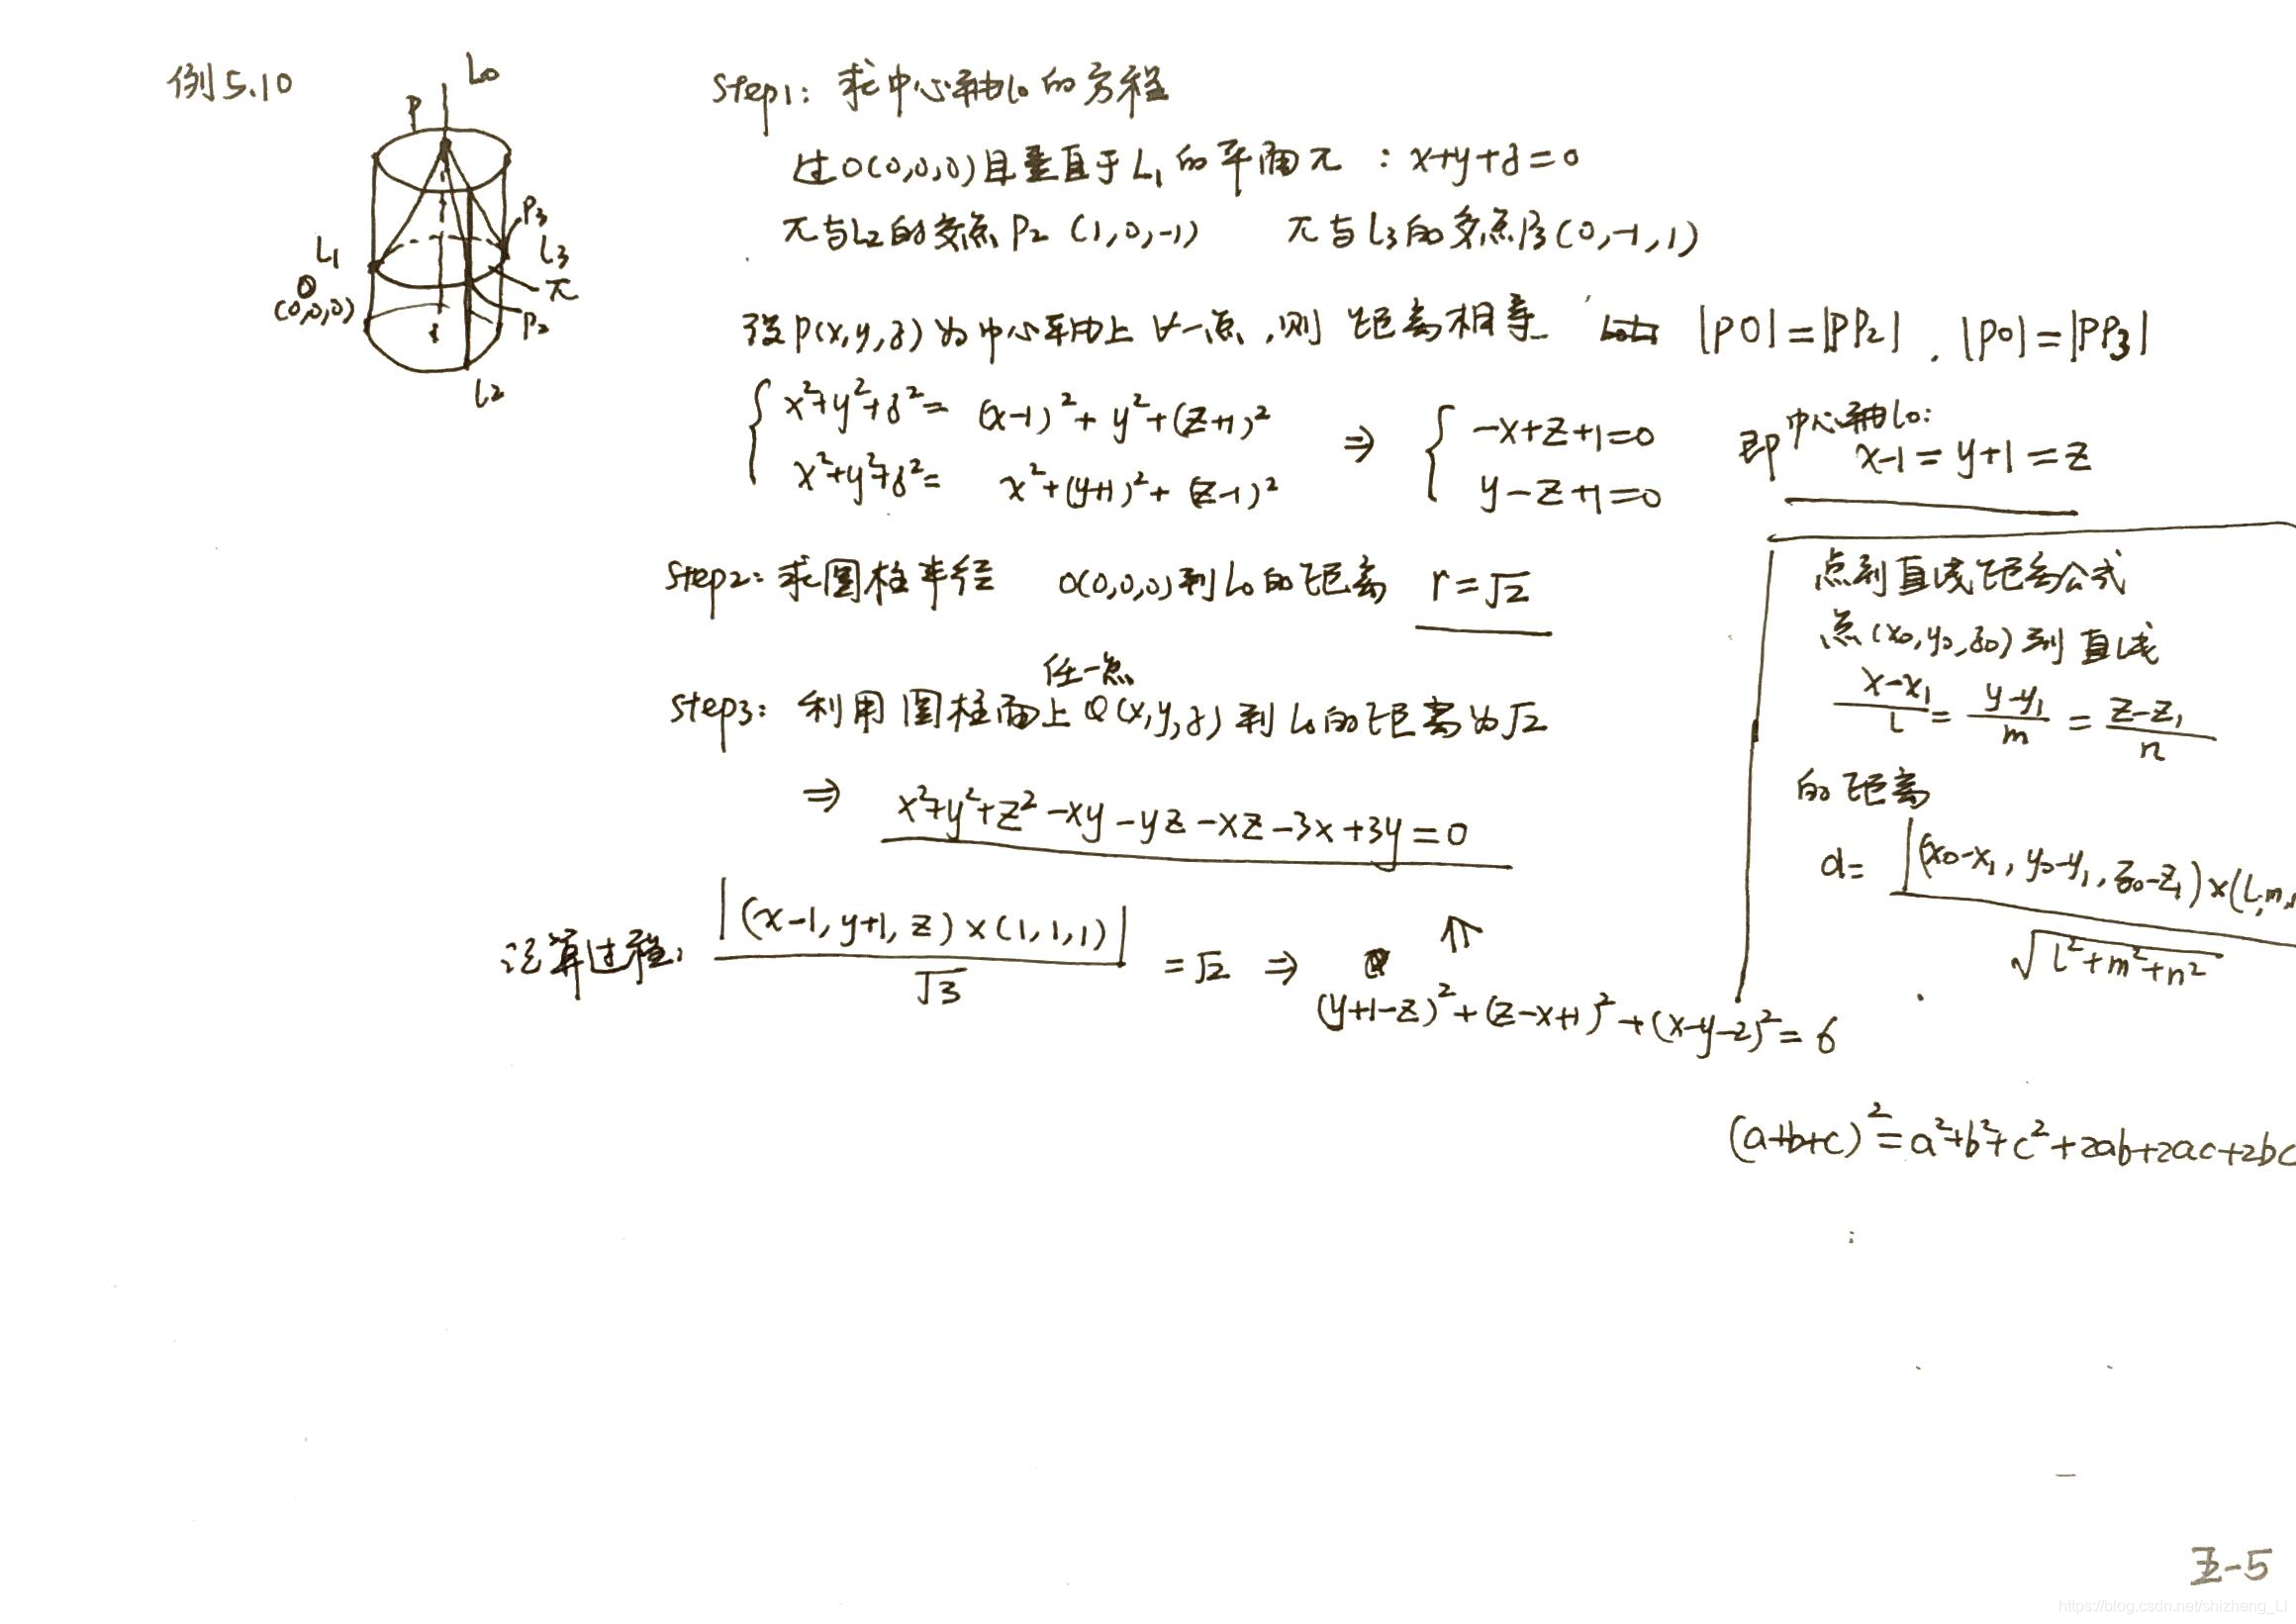 例5.10
L0
P
P3
L1
L3
O
π
(0,0,0)
P2
L2
Step1: 求中心轴L0的方程
过O(0,0,0)且垂直于L1的平面π : x+y+z=0
π与L2的交点P2 (1,0,-1) π与L3的交点P3(0,-1,1)
设P(x,y,z)为中心轴上任一点,则 距离相等 |PO|=|PP2| , |PO|=|PP3|
{ x²+y²+z²= (x-1)²+y²+(z+1)² ⇒ { -x+z+1=0 即中心轴L0:
x²+y²+z²= x²+(y+1)²+(z-1)² y-z+1=0 x-1=y+1=z
Step2: 求圆柱半径 O(0,0,0)到L0的距离 r=√2
Step3: 利用圆柱面上任一点Q(x,y,z)到L0的距离为√2
⇒ x²+y²+z²-xy-yz-xz-3x+3y=0
运算过程: |(x-1,y+1,z)×(1,1,1)|/√3 =√2 ⇒ (y+1-z)²+(z-x+1)²+(x-y-2)²=6
⇑
点到直线距离公式
点(x0,y0,z0)到直线
(x-x1)/l = (y-y1)/m = (z-z1)/n
的距离
d= |(x0-x1, y0-y1, z0-z1)×(l,m,n / √(l²+m²+n²)
(a+b+c)²=a²+b²+c²+2ab+2ac+2bc
Z-5
https://blog.csdn.net/shizheng_Li